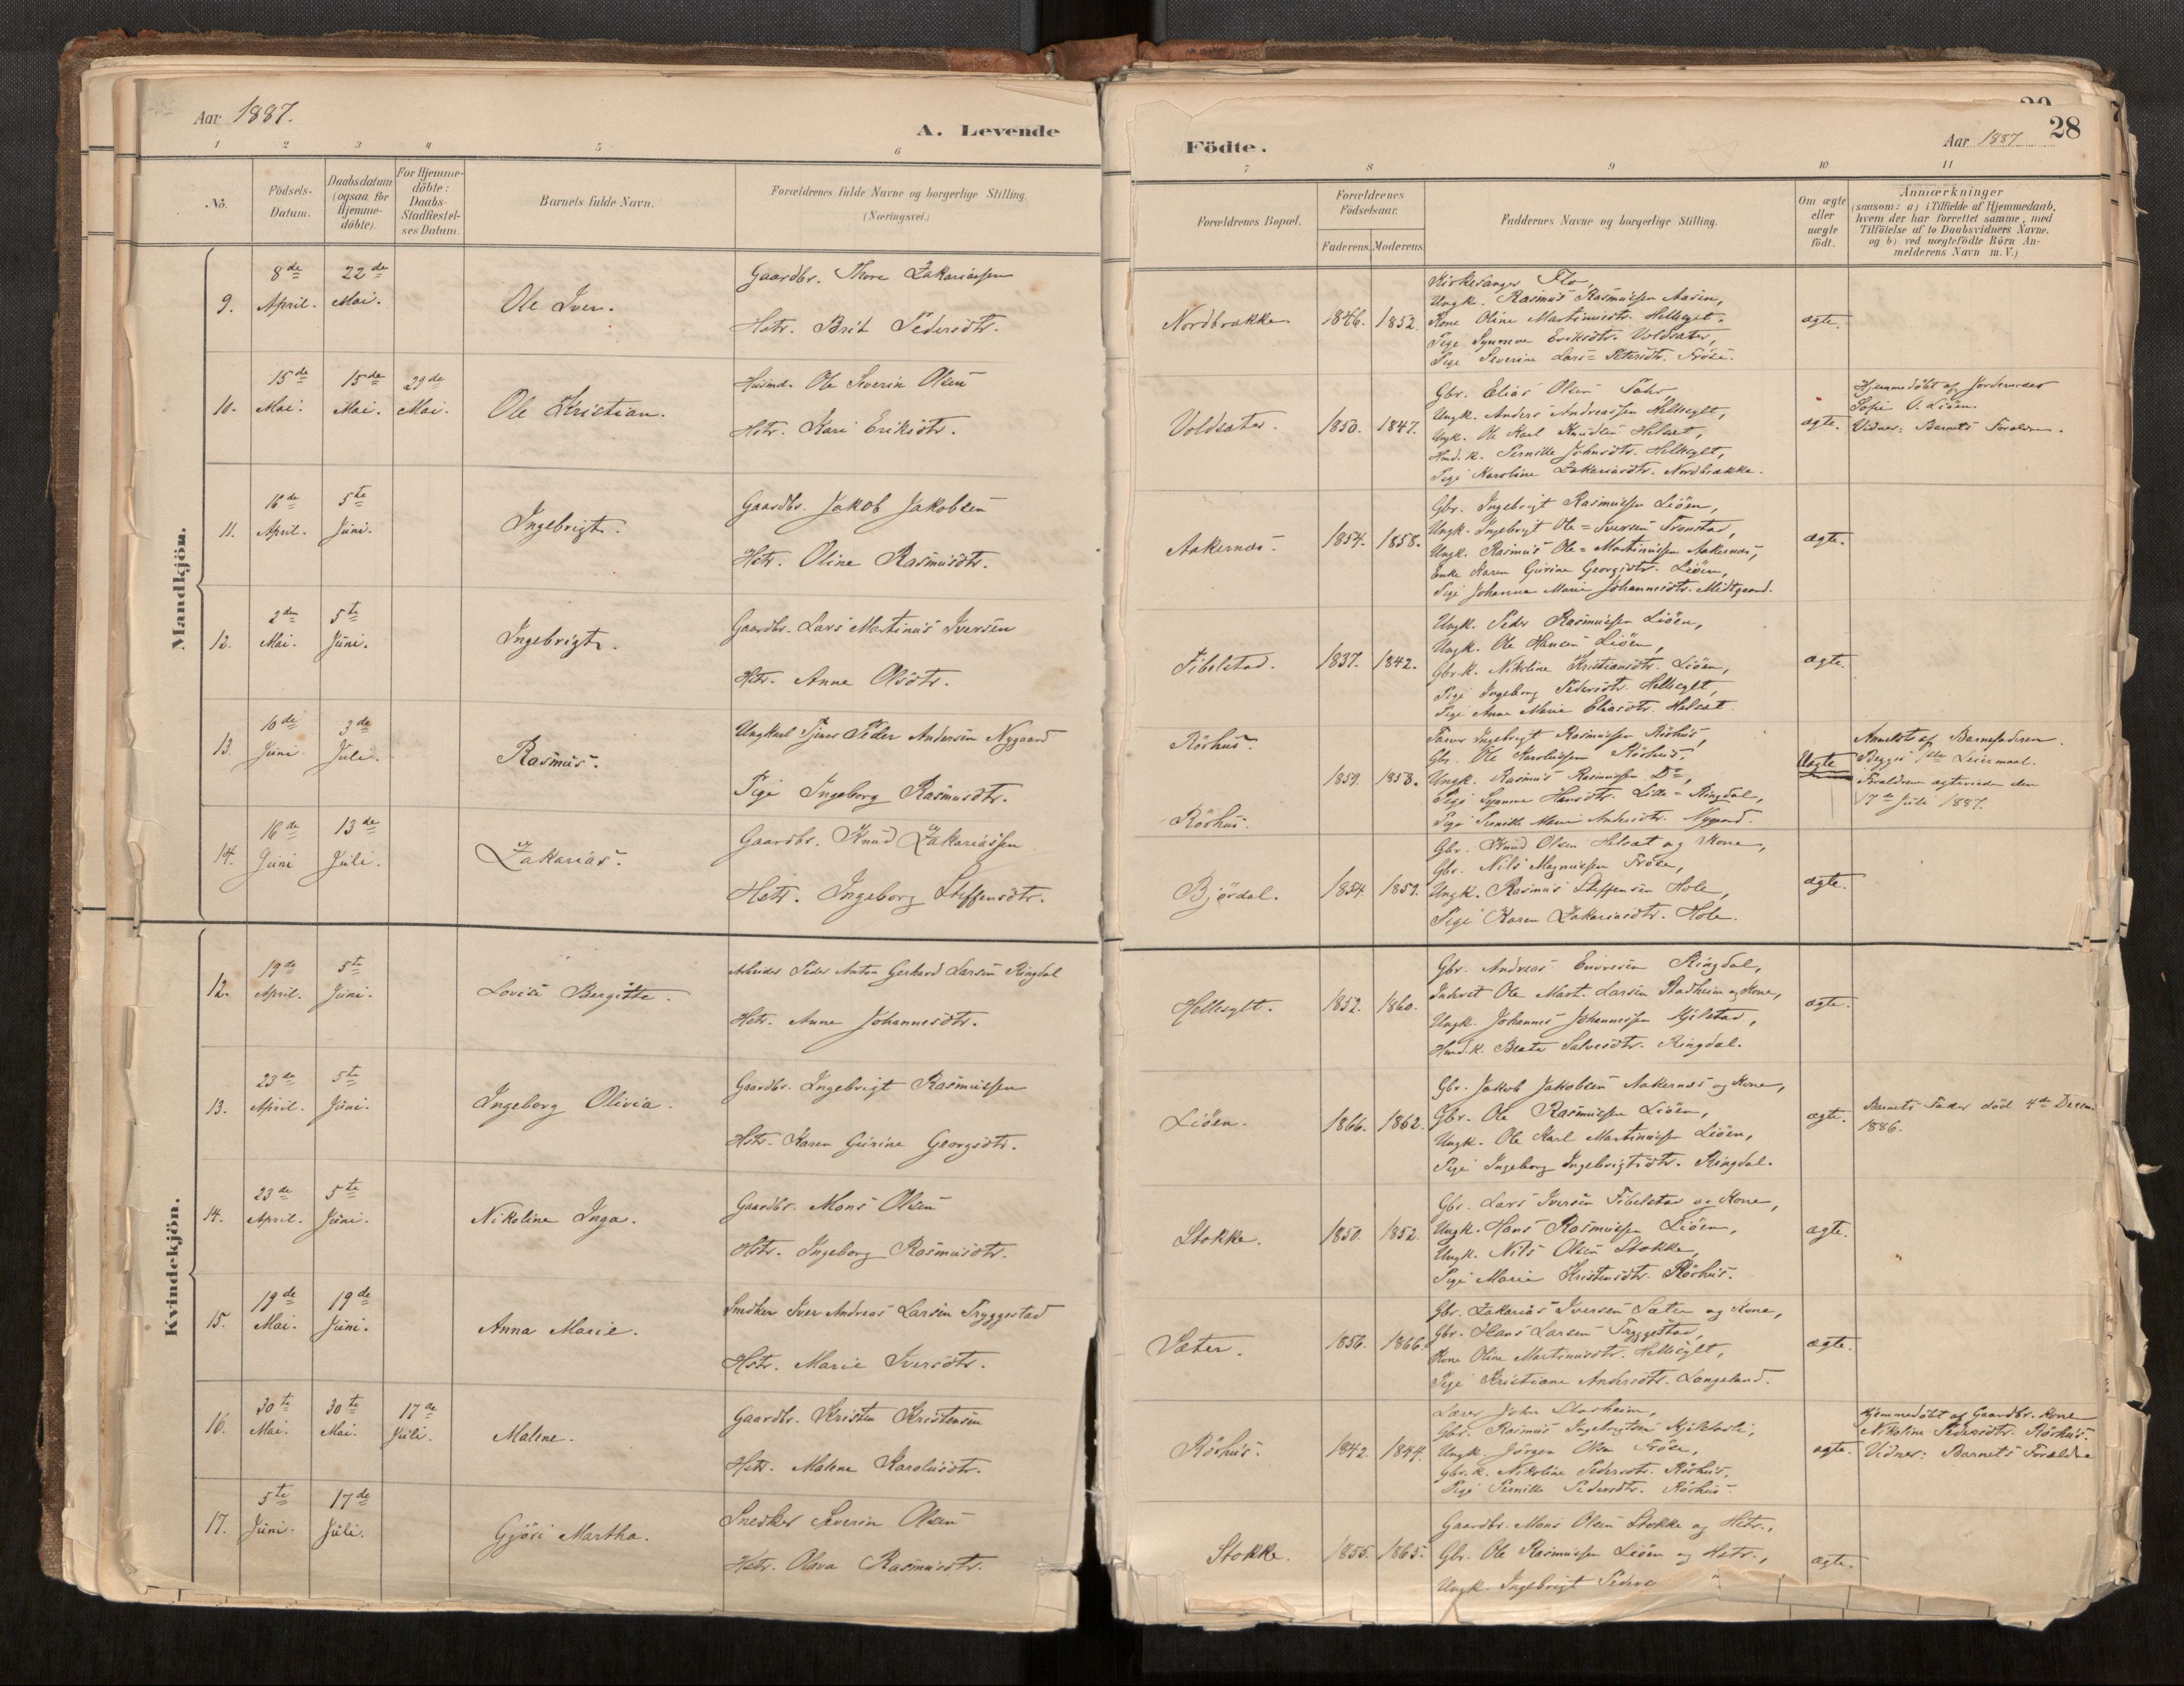 Aar 1887.
A. Levende
1 2 3 4 5 6
No.
Födsels-Datum.
Daabsdatum (ogsaa for Hjemme-döbte).
For Hjemme-döbte: Daabs-Stadfæstel-ses Datum.
Barnets fulde Navn.
Forældrenes fulde Navne og borgerlige Stilling (Næringsvei.)
Mandkjön.
9. 8de April. 22de Mai. Ole Iver.
Gaardbr. Thore Zakariassen
Hstr. Brit Pedersdtr.
10. 15de Mai. 15de Mai. 29de Mai. Ole Kristian.
Husmd. Ole Severin Olsen
Hstr. Kari Eriksdtr.
11. 16de April. 5te Juni. Ingebrigt.
Gaardbr. Jakob Jakobsen
Hstr. Oline Rasmusdtr.
12. 2den Mai. 5te Juni. Ingebrigt.
Gaardbr. Lars Martinus Iversen
Hstr. Anne Olsdtr.
13. 10de Juni. 3de Juli. Rasmus.
Ungkarl Tjener Peder Andersen Nygaard
Pige Ingeborg Rasmusdtr.
14. 16de Juni 13de Juli. Zakarias.
Gaardbr. Knud Zakariassen
Hstr. Ingeborg Steffensdtr.
Kvindekjön.
12. 19de April. 5te Juni. Lovise Bergitte.
Arbeider Peder Anton Gerhard Larsen Ringdal
Hstr. Anne Johannesdtr.
13. 23de April. 5te Juni. Ingeborg Olivia.
Gaardbr. Ingebrigt Rasmussen
Hstr. Karen Gurine Georgsdtr.
14. 23de April. 5te Juni. Nikoline Inga.
Gaardbr. Mons Olsen
Hstr. Ingeborg Rasmusdtr.
15. 19de Mai. 19de Juni. Anna Marie.
Snedker Iver Andreas Larsen Tryggestad
Hstr. Marie Iversdtr.
16. 30te Mai. 30te Mai. 17de Juli. Malene.
Gaardbr. Kristen Kristensen
Hstr. Malene Karolusdtr.
17. 5te Juni. 17de Juli. Gjöri Martha.
Snedker Severin Olsen
Hstr. Olava Rasmusdtr.
Födte.
Aar 1887
28
7 8 9 10 11
Forældrenes Bopæl.
Forældrenes Födselsaar.
Faderens. Moderens.
Faddernes Navne og borgerlige Stilling.
Om ægte eller uægte födt.
Anmærkninger
(saasom: a) i Tilfælde af Hjemmedaab,
hvem der har forrettet samme, med
Tilföielse af to Daabsvidners Navne.
og b) ved uægtefödte Börn An-
melderens Navn m.V.)
Nordbrække. 1846. 1852. ægte.
Kirkesanger Flo,
Ungk. Rasmus Rasmussen Aasen,
Kone Oline Martinusdtr. Hellesylt,
Pige Synneve Eriksdtr. Voldsæter,
Pige Severine Lars=Petersdtr. Fröse.
Voldsæter. 1850. 1847. ægte.
Gbr. Elias Olsen
Ungk. Anders Andreassen Hellesylt,
Ungk. Ole Karl Knudsen Helsæt,
Hmd.k. Pernille Johnsdtr. Hellesylt,
Pige Karoline Zakariasdtr. Nordbrække.
Hjemmedöbt af Jordemoder
Sofie O. Liöen.
Vidner: Barnets Forældre.
Aakernæs. 1854. 1858. ægte.
Gbr. Ingebrigt Rasmussen Liöen,
Ungk. Ingebrigt Ole=Iversen Tronstad,
Ungk. Rasmus Ole=Martinussen Aakernæs,
Enke Karen Gurine Georgsdtr. Liöen,
Pige Johanne Marie Johannesdtr. Midtgaard.
Fibelstad. 1837. 1842. ægte.
Ungk. Peder Rasmussen Liöen,
Ungk. Ole Hansen Liöen,
Gbr.k. Nikoline Kristiansdtr. Liöen,
Pige Ingeborg Pedersdtr. Hellesylt,
Pige Anne Marie Eliasdtr. Helsæt.
Röshus. Röshus. 1859. 1858. Uægte
Ingebrigt Rasmussen Röshus,
Gbr. Ole Karolussen Röshus,
Ungk. Rasmus Rasmussen Do,
Pige Synneve Hansdtr. Lille=Ringdal,
Pige Pernille Marie Andersdtr. Nygaard.
Anmeldt af Barnefaderen.
Begges 1ste Leiermaal.
Forældrene ægteviede den
17de Juli 1887.
Bjørdal. 1854. 1859. ægte.
Gbr. Knud Olsen Helsæt og Kone,
Gbr. Nils Magnussen Fröse,
Ungk. Rasmus Steffensen Hole,
Pige Karen Zakariasdtr. Hole.
Hellesylt. 1852. 1860. ægte.
Gbr. Andreas Ringdal,
Inderst Ole Mart. Larsen Stadheim og Kone,
Ungk. Johannes Johannessen Kjelstad,
Hmd.k. Beate Salvesdtr. Ringdal.
Liöen. 1866. 1862. ægte.
Gbr. Jakob Jakobsen Aakernæs og Kone,
Gbr. Ole Rasmussen Liöen,
Ungk. Ole Karl Martinussen Liöen,
Pige Ingeborg Ingebrigtsdtr. Ringdal.
Barnets Fader död 4de Decem.
1886.
Stokke. 1850. 1852. ægte.
Gbr. Lars Iversen Fibelstad og Kone,
Ungk. Hans Rasmussen Liöen,
Ungk. Nils Olsen Stokke,
Pige Marie Kristensdtr. Röshus.
Sæter. 1856. 1866. ægte.
Gbr. Zakarias Iversen Sæter og Kone,
Gbr. Hans Larsen Tryggestad,
Kone Oline Martinusdtr. Hellesylt,
Pige Kristiane Andersdtr. Langeland.
Röshus. 1842. 1844. ægte.
Lærer John
Gbr. Rasmus Ingebrigtsen
Ungk. Jörgen Olsen Fröse,
Gbr.k. Nikoline Pedersdtr. Röshus,
Pige Pernille Pedersdtr. Röshus.
Hjemmedöbt af Gaardbr. Kone
Nikoline Pedersdtr. Röshus.
Vidner: Barnets Forældre
Stokke. 1855. 1865. ægte.
Gaardbr. Mons Olsen Stokke og Hstr.,
Gbr. Ole Rasmussen Liöen og Hstr.,
Ungk. Ingebrigt